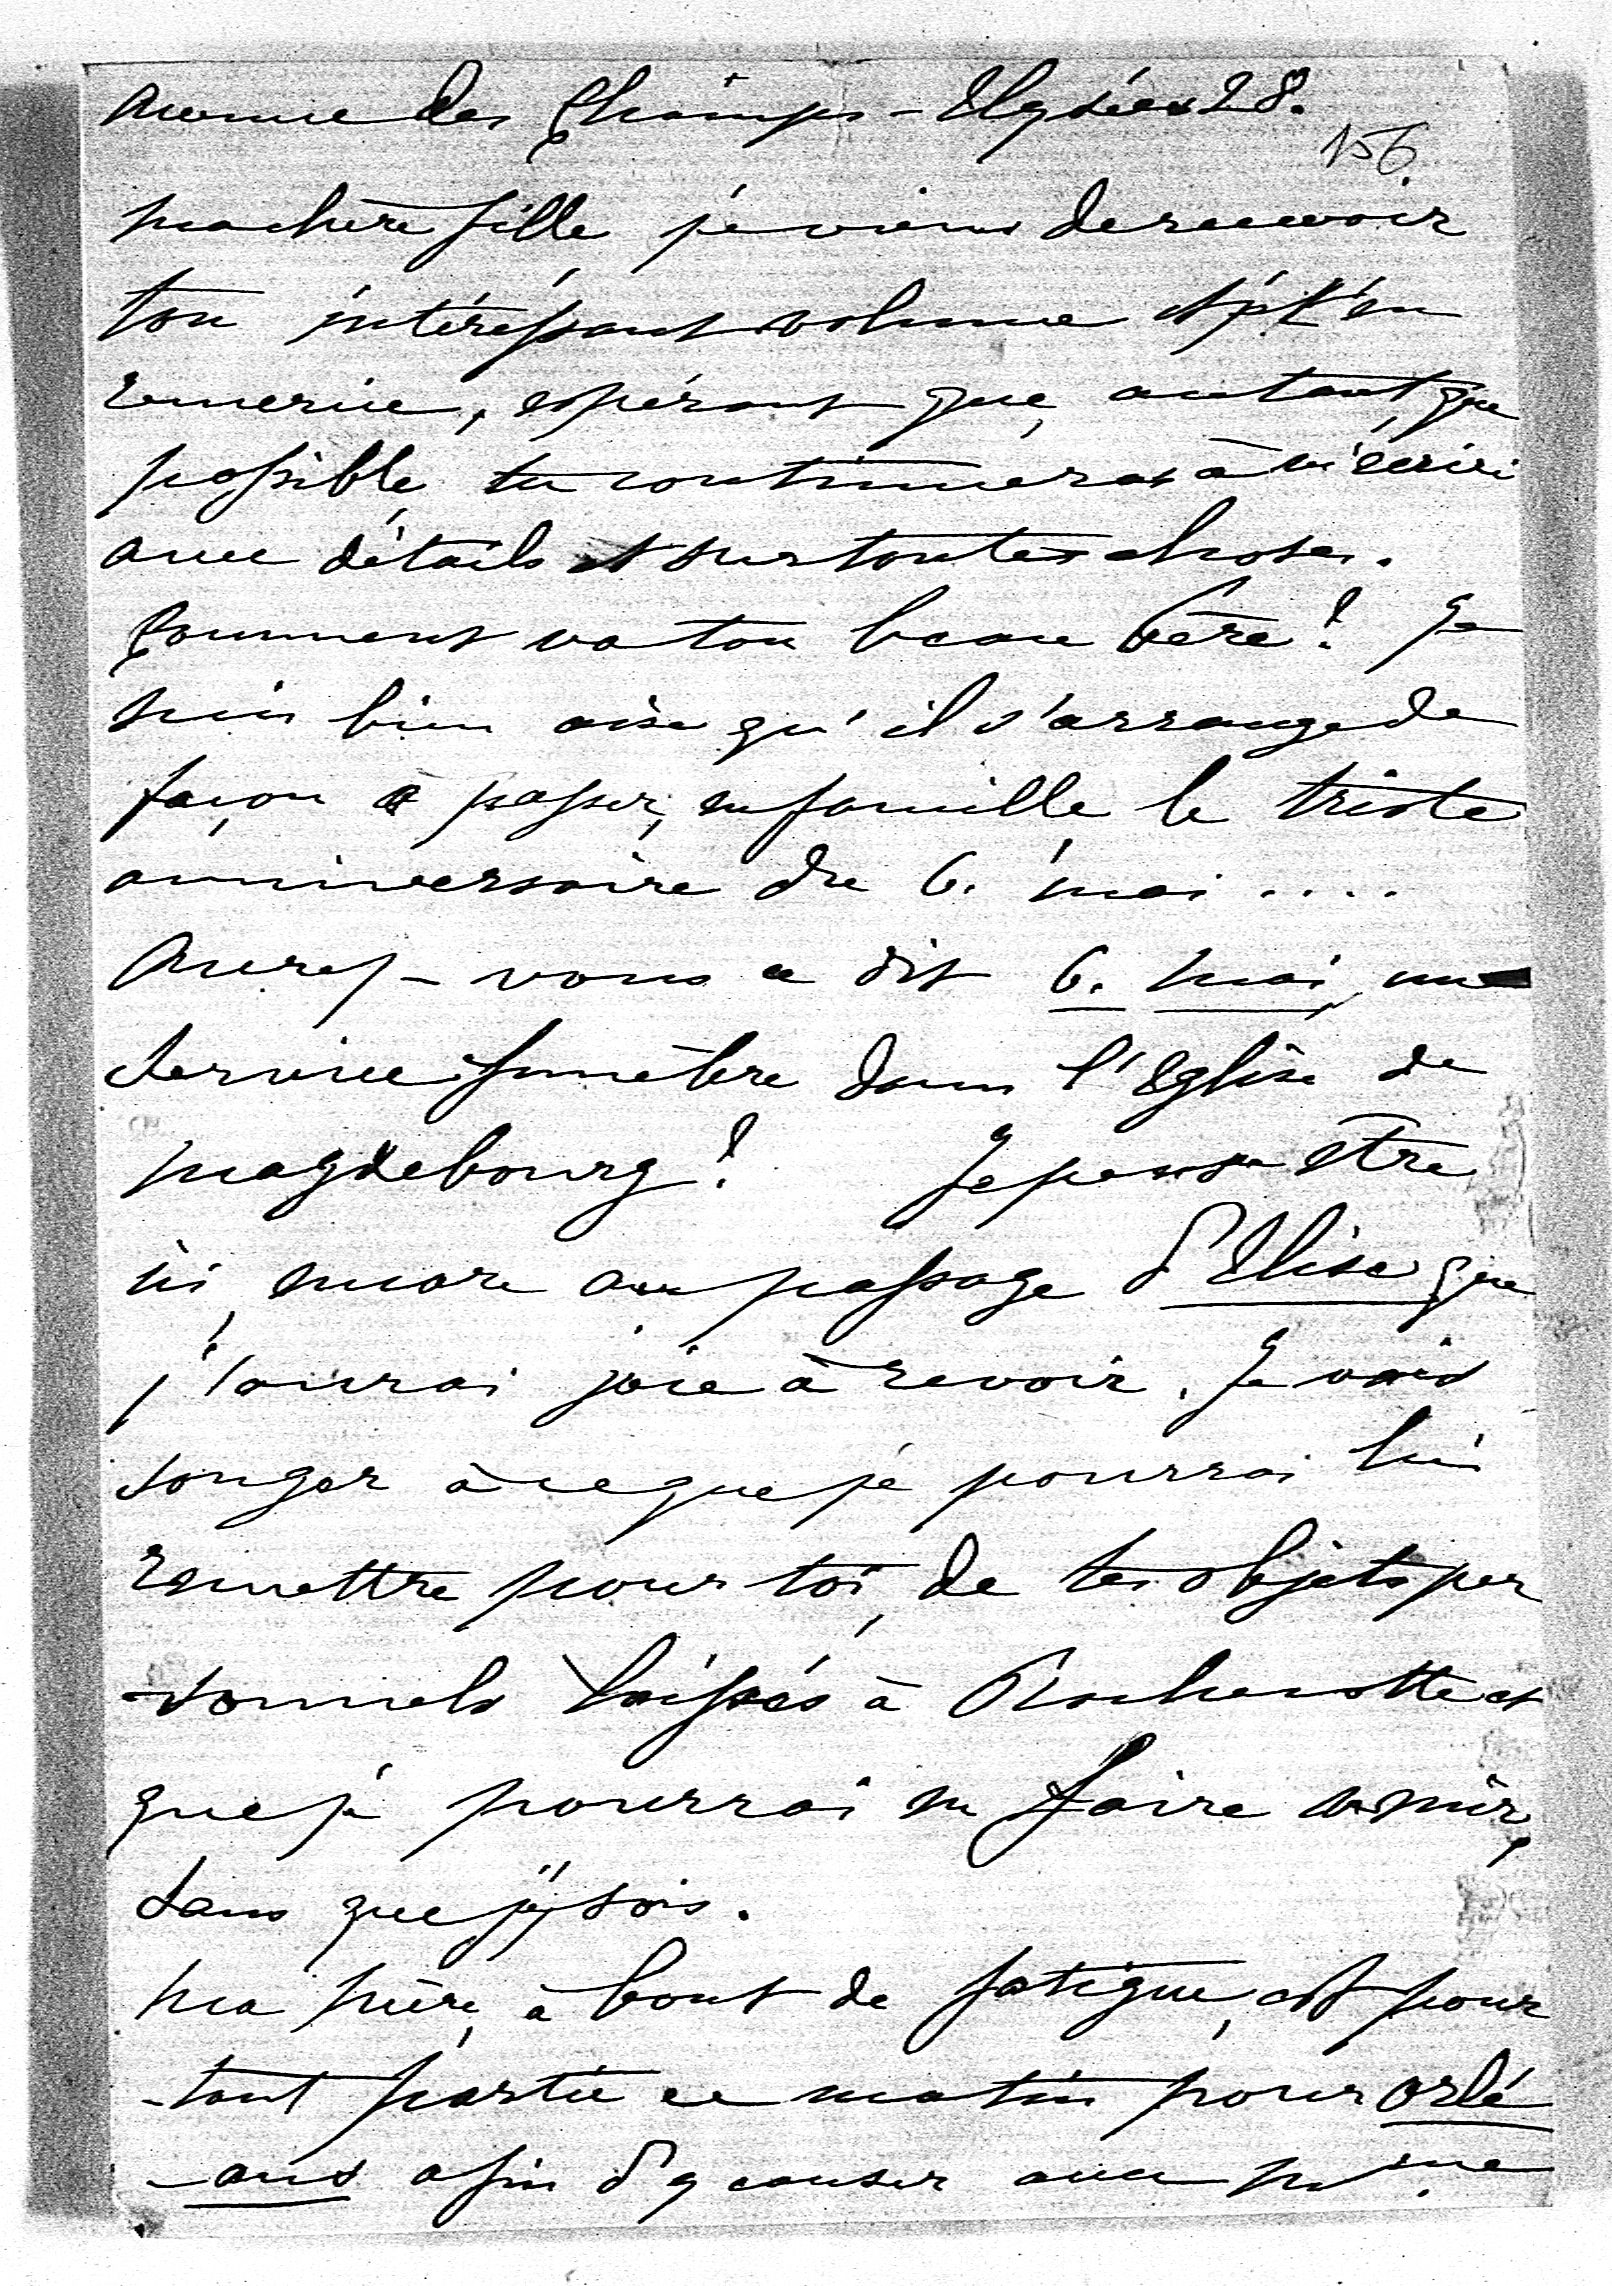 Avenue des Champs-Elysées 28.
156
Ma chère fille, je viens de recevoir
ton intéressant volume et je t'en
remercie, espérant que, autant que
possible, tu continueras à m'écrire
avec détails et sur toutes choses.
Comment va ton beau Père? Je
suis bien aise qu'il s'arrange de
façon à passer, en famille le triste
anniversaire du 6. mai ....
Aurez-vous ce dit 6. mai, un
service funèbre dans l'Eglise de
Magdebourg? Je pense être
ici, encore au passage d'Elise que
j'aurai joie à revoir. Je vais
songer à ce que je pourrai lui
remettre pour toi, de tes objets per
-sonnels laissés à Rochecotte et
que je pourrai en faire venir,
sans que j'y sois.
Ma mère, à bout de fatigue, est pour
-tant partie ce matin pour Orlé
-ans afin d'y causer avec Mme